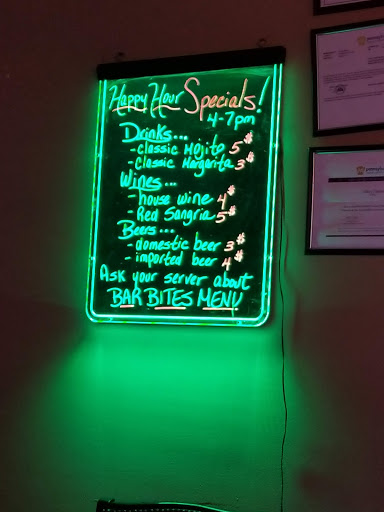 Happy Hour Specials!
4-7pm
Drinks...
-classic Mojito 5$
-Classic Margarita 3$
Wines...
-house wine 4$
-Red Sangria 5$
Beers...
-domestic beer 3$
-imported beer 4$
Ask your server about
BAR BITES MENU